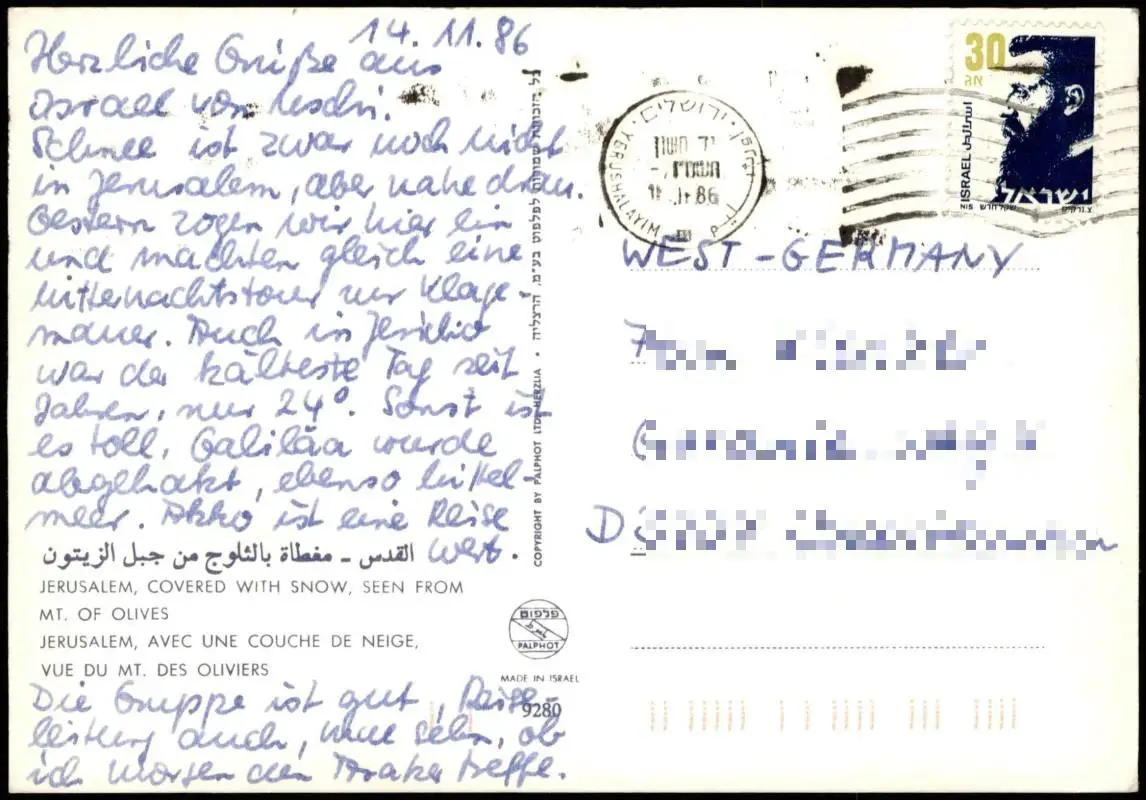 14.11.86
Herzliche Grüße aus
Israel von Uschi.
Schnee ist zwar noch nicht
in Jerusalem, aber nahe dran.
Gestern zogen wir hier ein
und machten gleich eine
Mitternachtstour zur Klage-
mauer. Auch in Jericho
war der kälteste Tag seit
Jahren, nur 24°. Sonst ist
es toll, Galiläa wurde
abgehakt, ebenso Mittel-
meer. Akko ist eine Reise
wert.
القدس - مغطاة بالثلوج من جبل الزيتون
JERUSALEM, COVERED WITH SNOW, SEEN FROM
MT. OF OLIVES
JERUSALEM, AVEC UNE COUCHE DE NEIGE,
VUE DU MT. DES OLIVIERS
Die Gruppe ist gut, Reise-
leitung auch, mal sehn, ob
ich morgen den treffe.
COPYRIGHT BY PALPHOT LTD. HERZLIA • כל הזכויות שמורות לפלפוט בע"מ. הרצליה
פלפוט
PALPHOT
MADE IN ISRAEL
9280
ירושלים
YERUSHALAYIM
יד חשון
86
30
ISRAEL
اسرائيل
ישראל
NIS שקל חדש
WEST-GERMANY
D